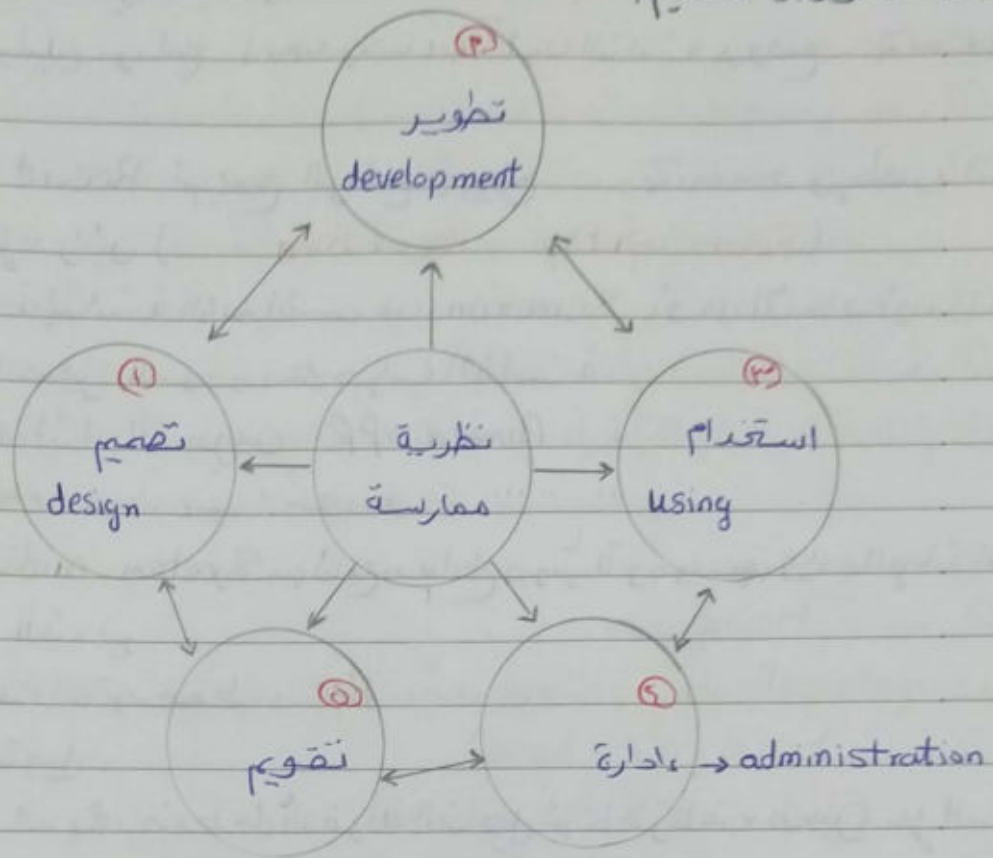 ٢
تطوير
development
١
تصميم
design
نظرية
ممارسة
٣
استخدام
using
٥
تقويم
٤
إدارة → administration